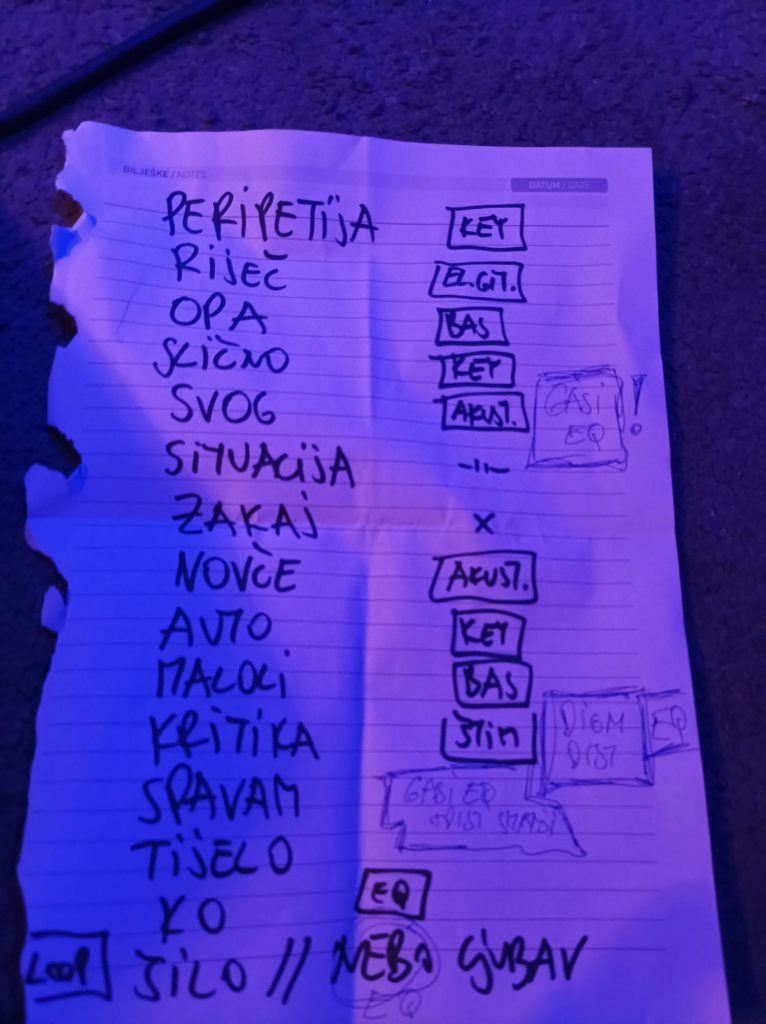 BILJEŠKE / NOTES DATUM / DATE
PERIPETIJA KEY
RIJEČ EL.GIT.
OPA BAS
SLIČNO KEY
SVOG AKUST.
GASI EQ !
SITUACIJA -11-
ZAKAJ X
NOVČE AKUST.
AUTO KEY
MALOLI BAS
KRITIKA ŠTIM
DIGM DIST EQ
SPAVAM
GASI EQ
+DIST
TIJELO
KO EQ
LOOP ŠILO // NEBO LJUBAV
EQ